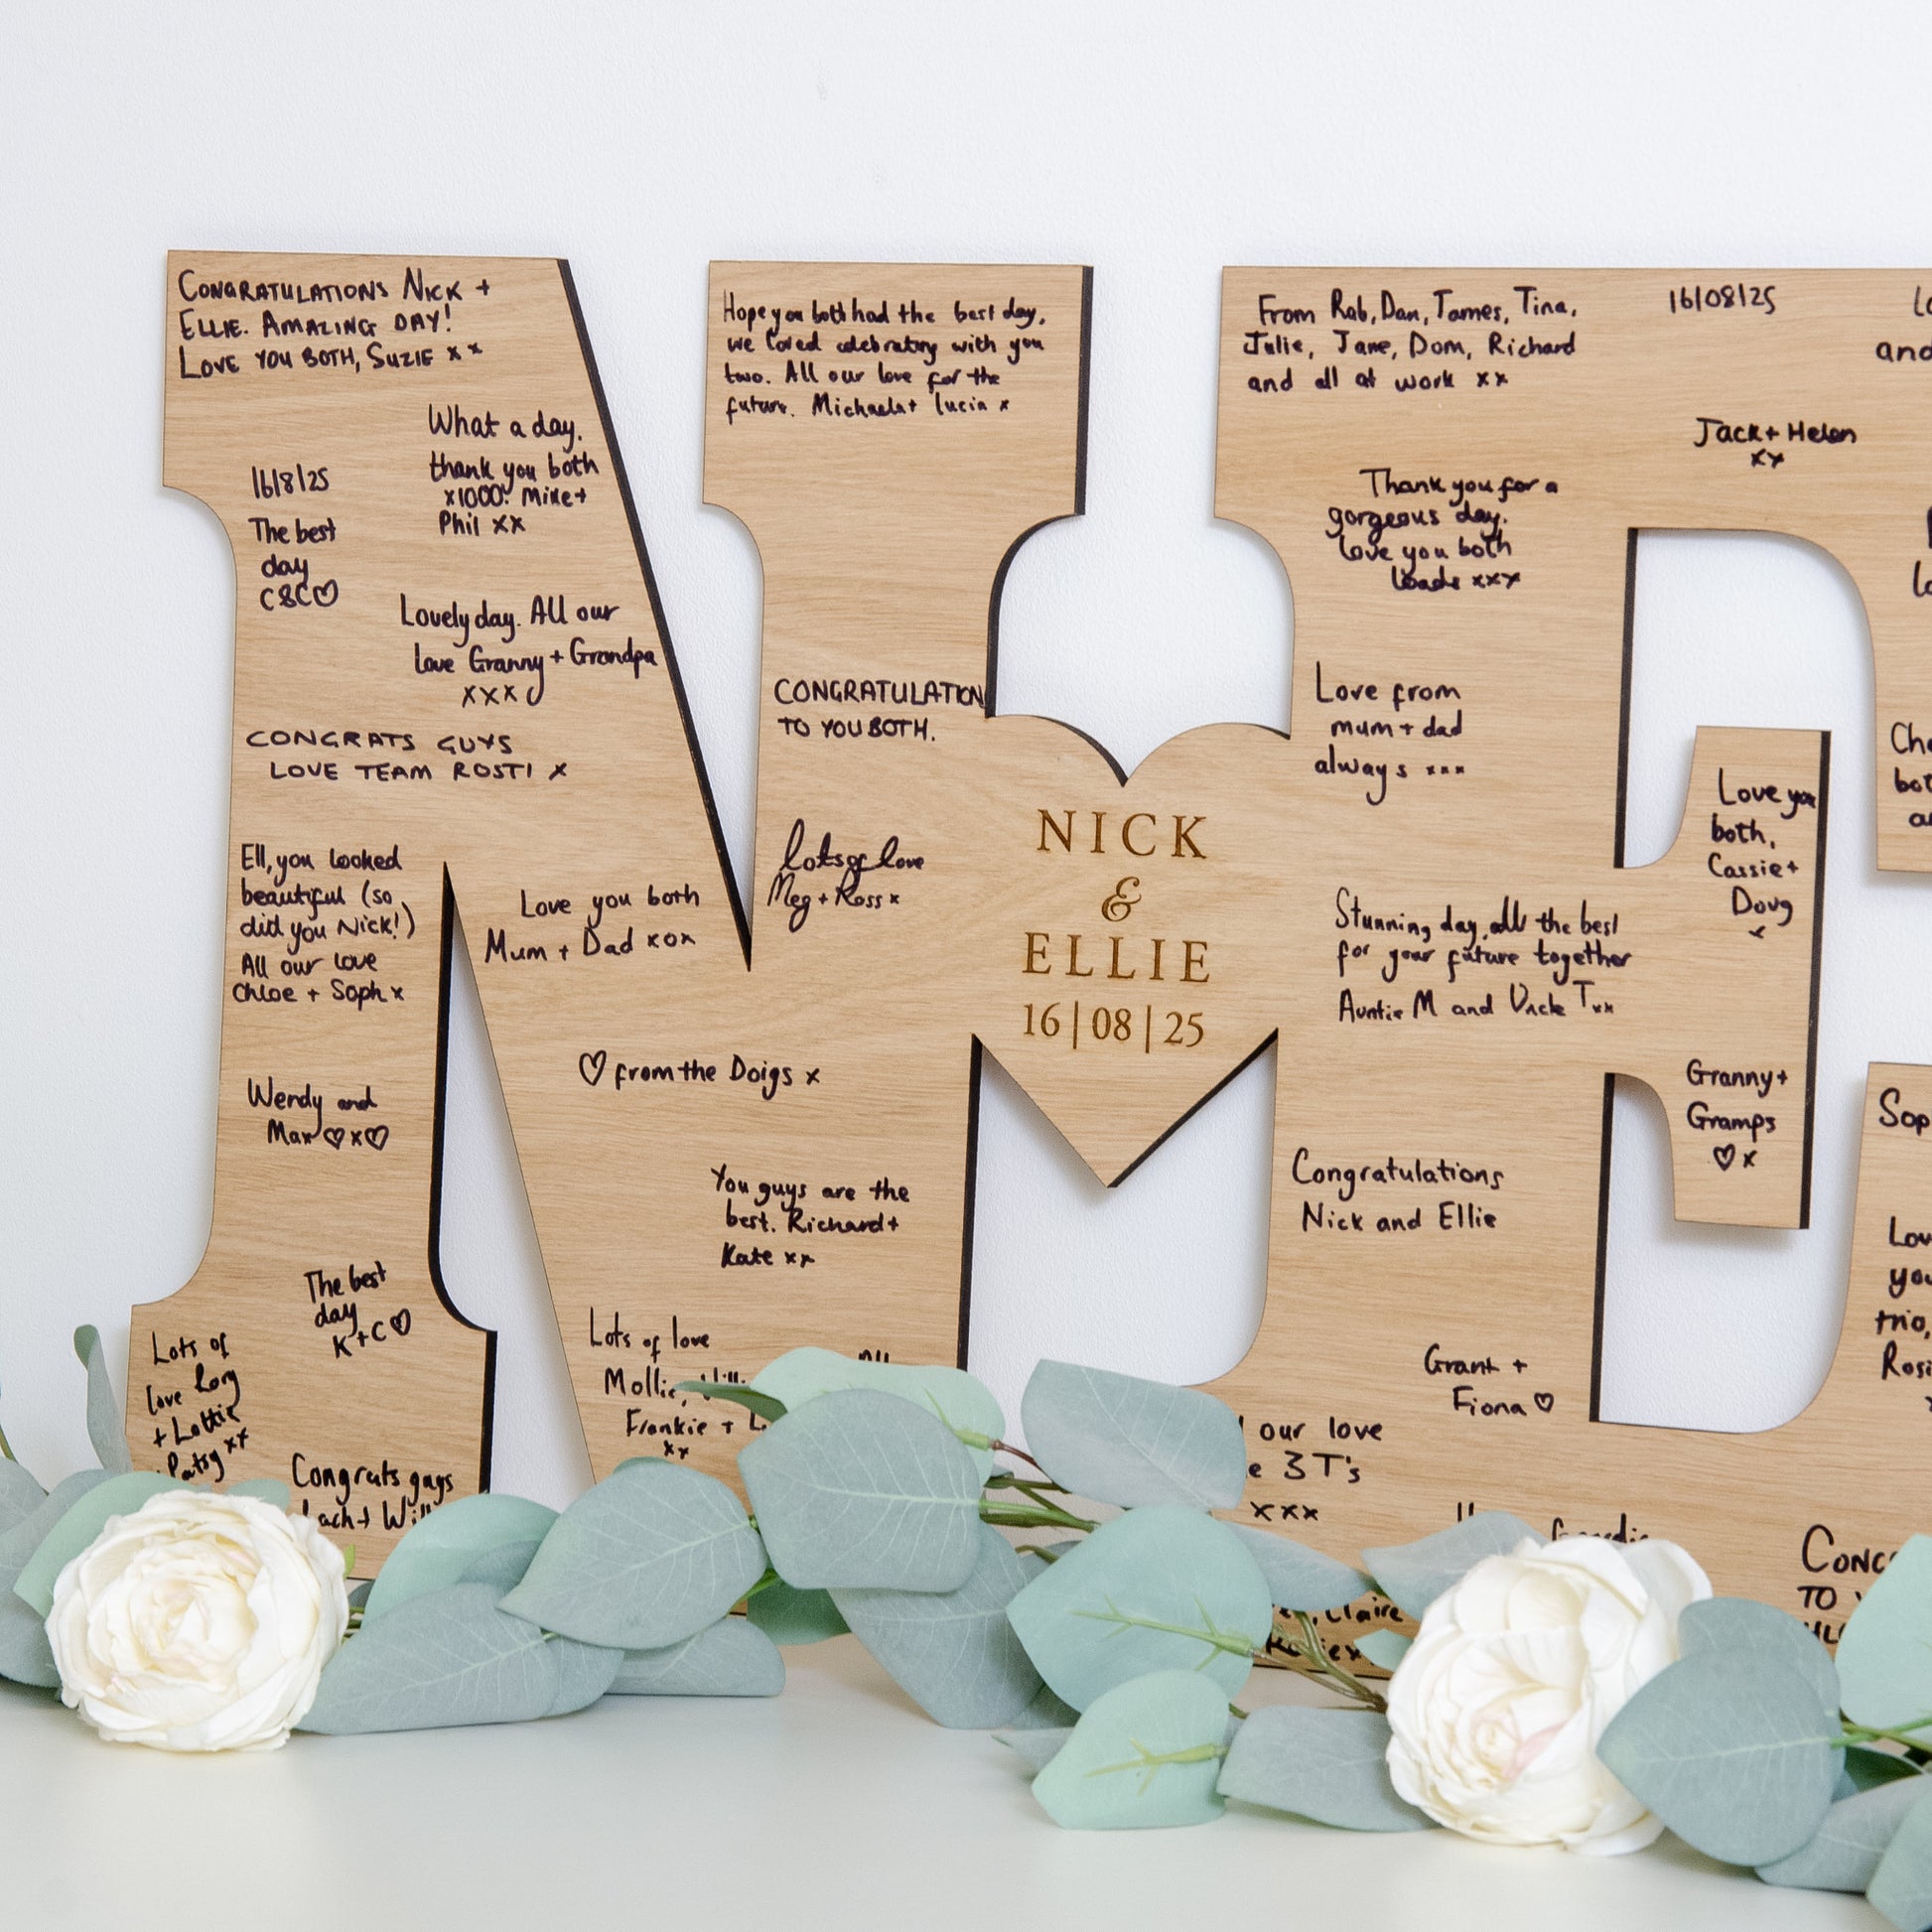 CONGRATULATIONS NICK +
ELLIE. AMAZING DAY!
LOVE YOU BOTH, SUZIE x x
What a day.
thank you both
x1000! Mike +
Phil xx
16/8/25
The best
day
C&C♡
Lovely day. All our
love Granny + Grandpa
xxx
CONGRATS GUYS
LOVE TEAM ROSTI x
Ell, you looked
beautiful (so
did you Nick!)
All our love
Chloe + Soph x
Love you both
Mum + Dad xox
♡ from the Doigs x
Wendy and
Max ♡x♡
You guys are the
best. Richard +
Kate xx
The best
day
K+C♡
Lots of
love Rory
+ Lottie
Patsy xx
Congrats guys
Lots of love
Mollie,
Frankie +
xx
Hope you both had the best day,
we loved celebrating with you
two. All our love for the
future. Michaela + Lucia x
CONGRATULATION
TO YOU BOTH.
lots of love
Meg + Ross x
NICK
&
ELLIE
16|08|25
From Rob, Dan, James, Tina,
Julie, Jane, Dom, Richard
and all at work xx
16/08/25
Jack + Helen
xx
Thank you for a
gorgeous day.
love you both
loads xxx
Love from
mum + dad
always xxx
Love you
both,
Cassie +
Doug
x
Stunning day, all the best
for your future together
Auntie M and Uncle T xx
Granny +
Gramps
♡ x
Congratulations
Nick and Ellie
Grant +
Fiona ♡
our love
3 T's
xxx
Claire
TO
and